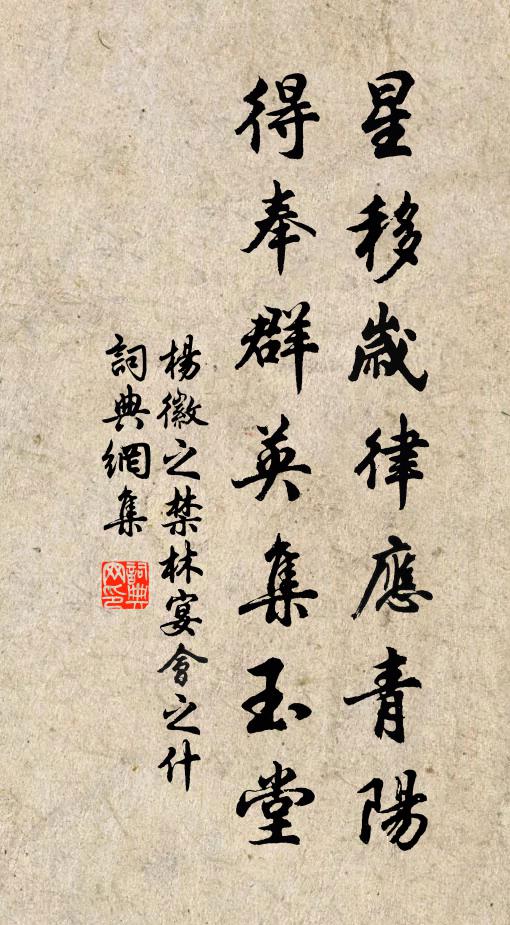 星移歲律應青陽
得奉群英集玉堂
楊徽之禁林宴會之什
詞典網集
詞典网印